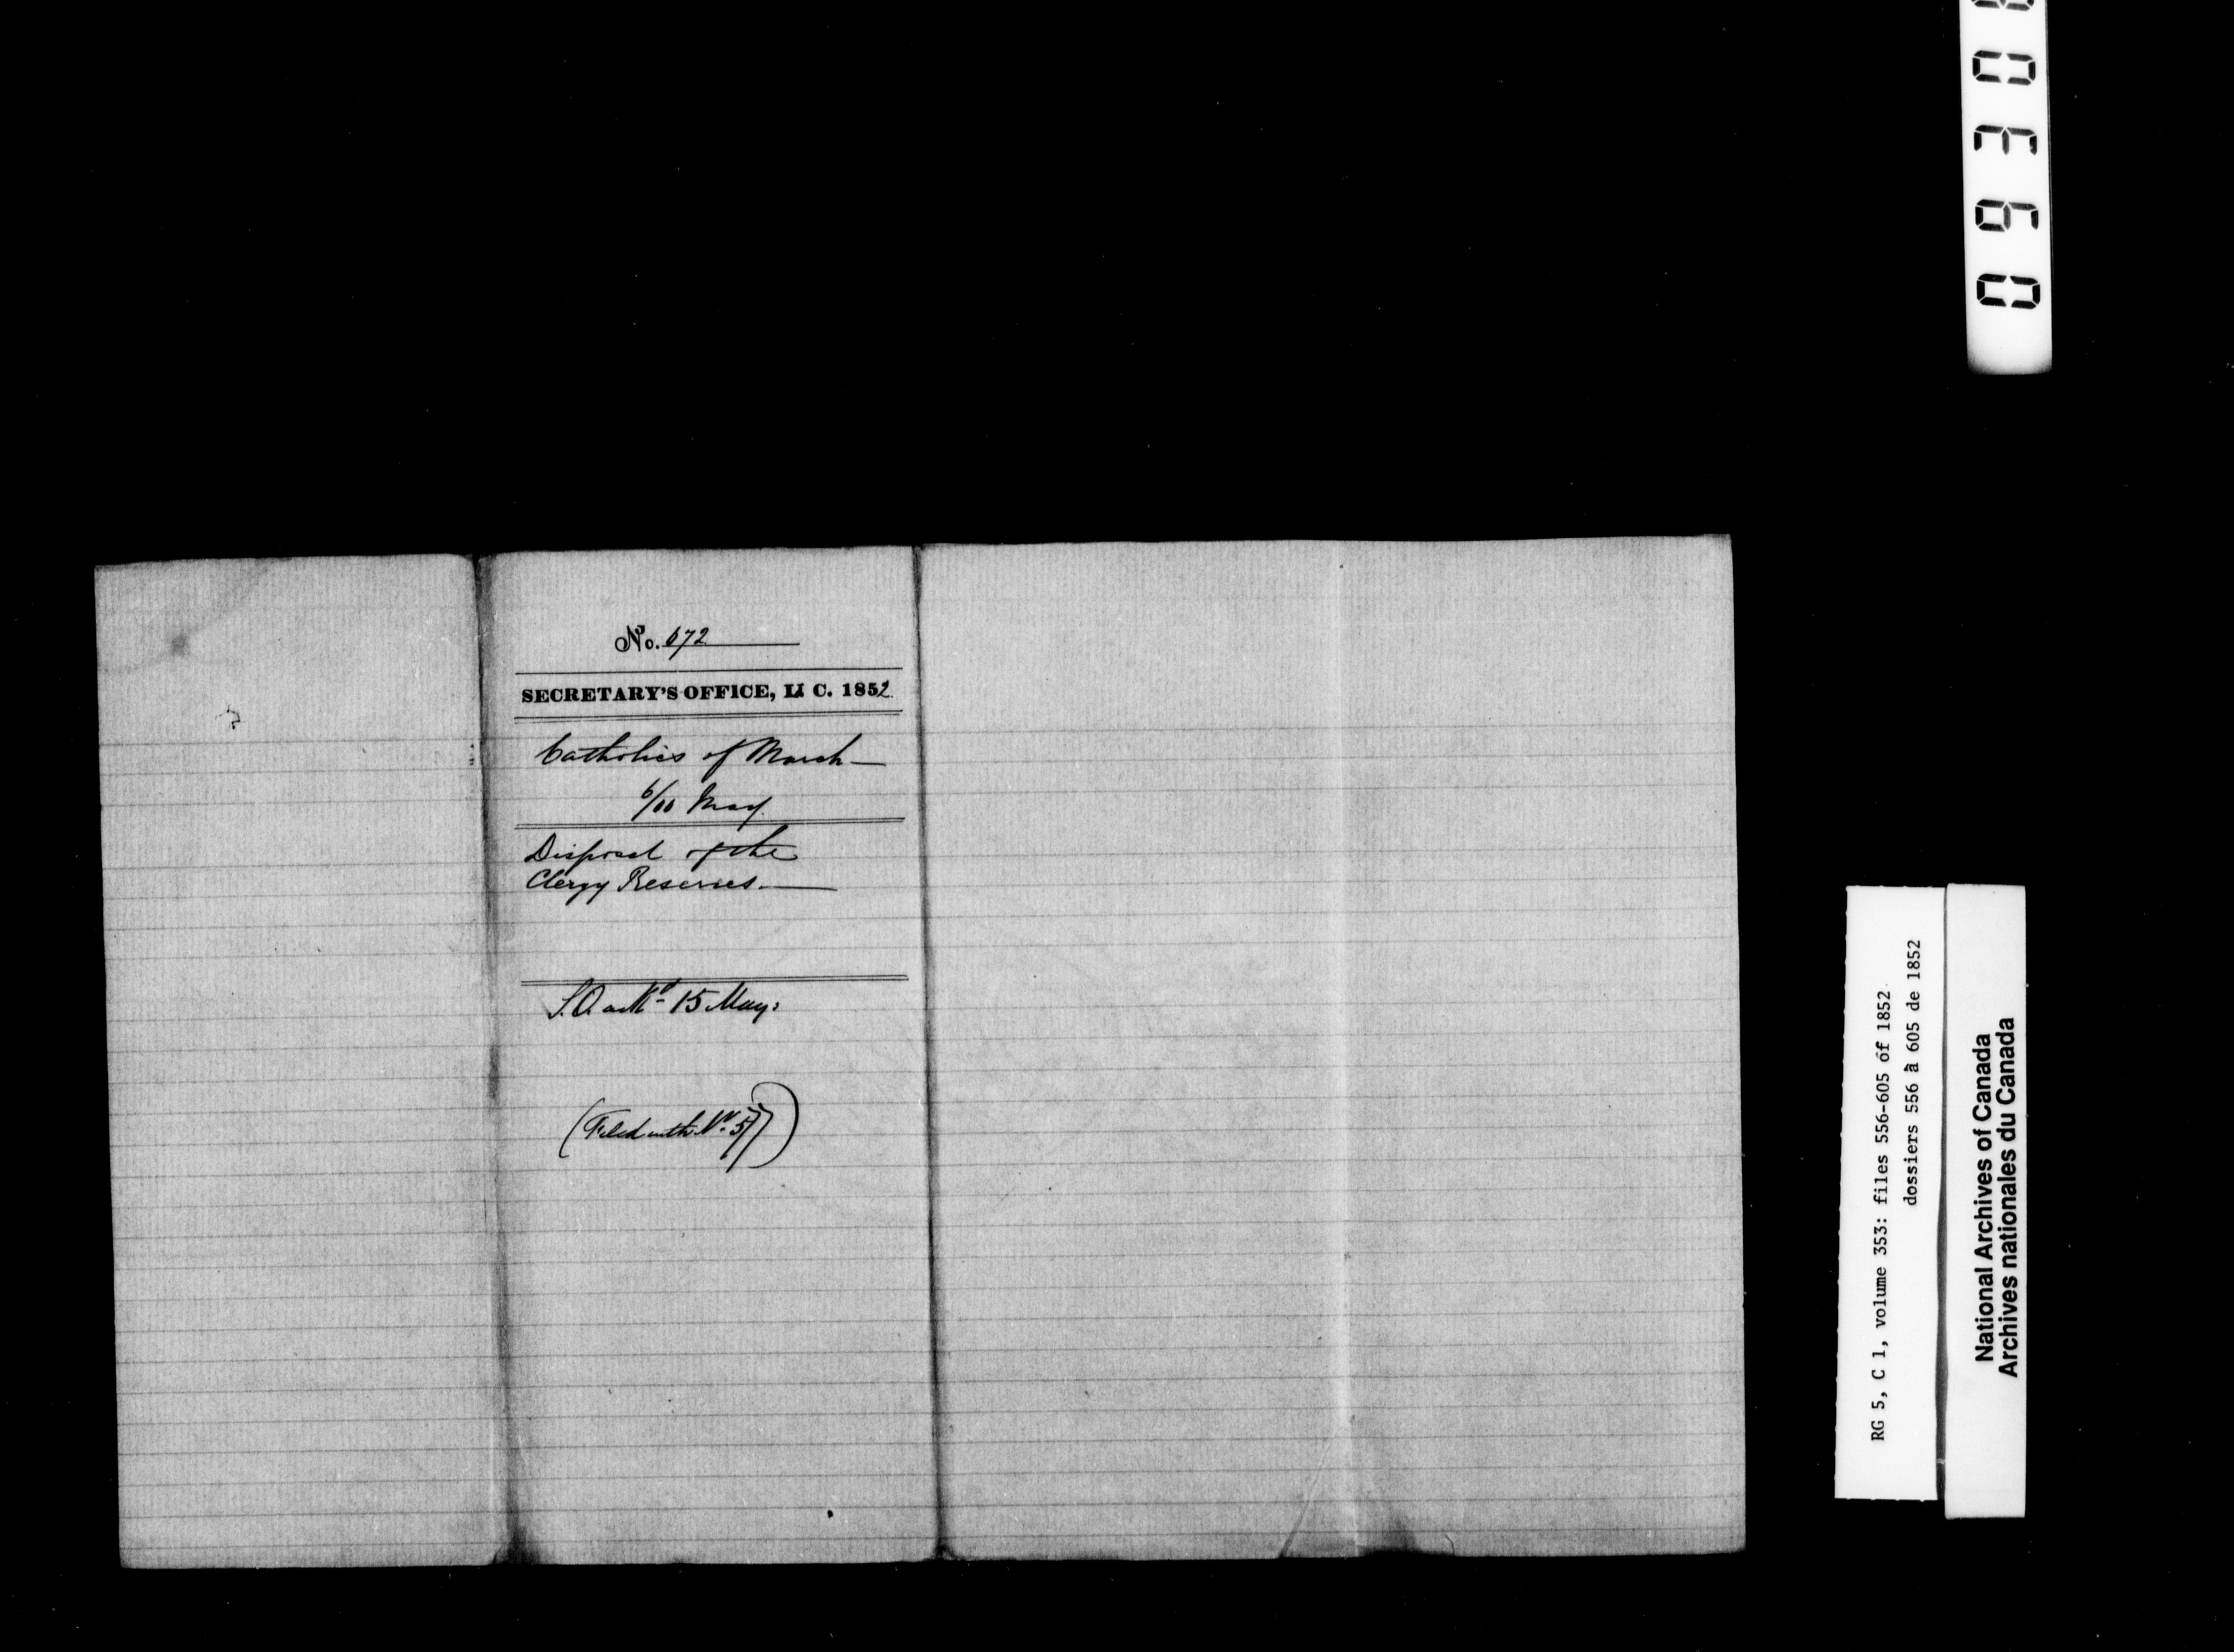 No. 672
SECRETARY'S OFFICE, U. C. 1852
Catholics of March —
6/10 May
Disposal of the
Clergy Reserves. —
S.O. ackd 15 May:
(Filed with No. 577)
RG 5, C 1, volume 353: files 556-605 of 1852
dossiers 556 à 605 de 1852
National Archives of Canada
Archives nationales du Canada